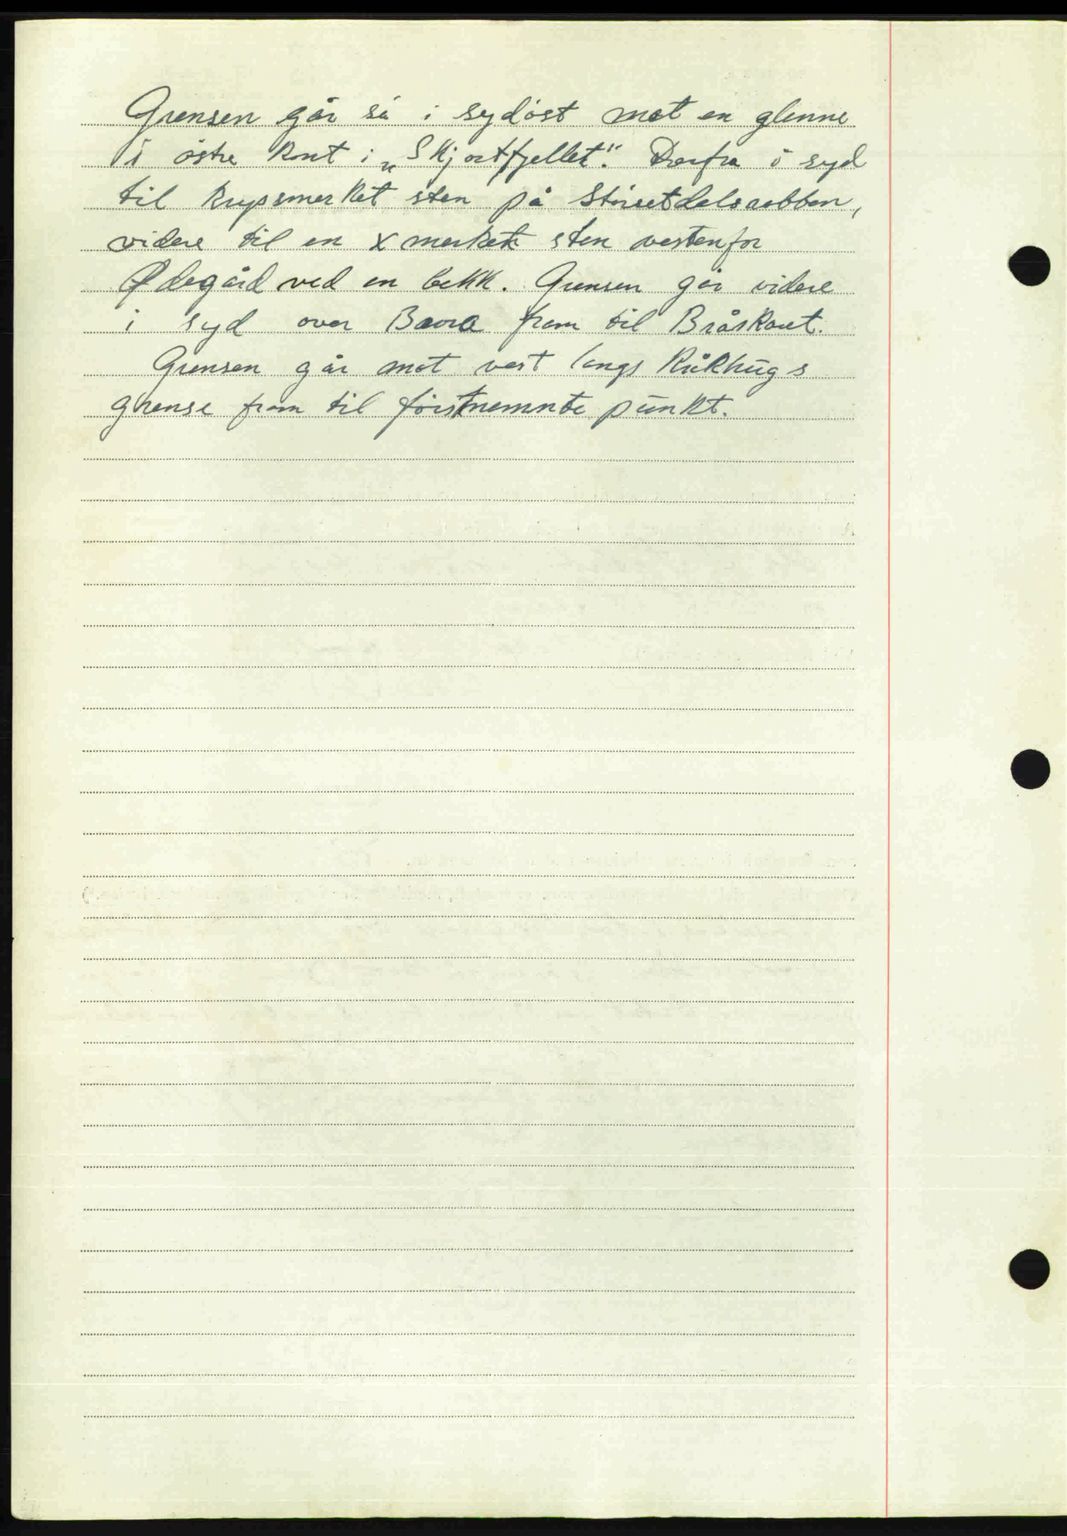 Grensen går så i sydöst mot en glenne
i östre kant i „Skjortfjellet". Derfra i syd
til kryssmerket sten på Störsetdalsrabben,
videre til en x merket sten vestenfor
Ødegård ved en bekk. Grensen går videre
i syd over Bævra fram til Bråskaret.
Grensen går mot vest langs Råkhaugs
grense fram til förstnemnte punkt.